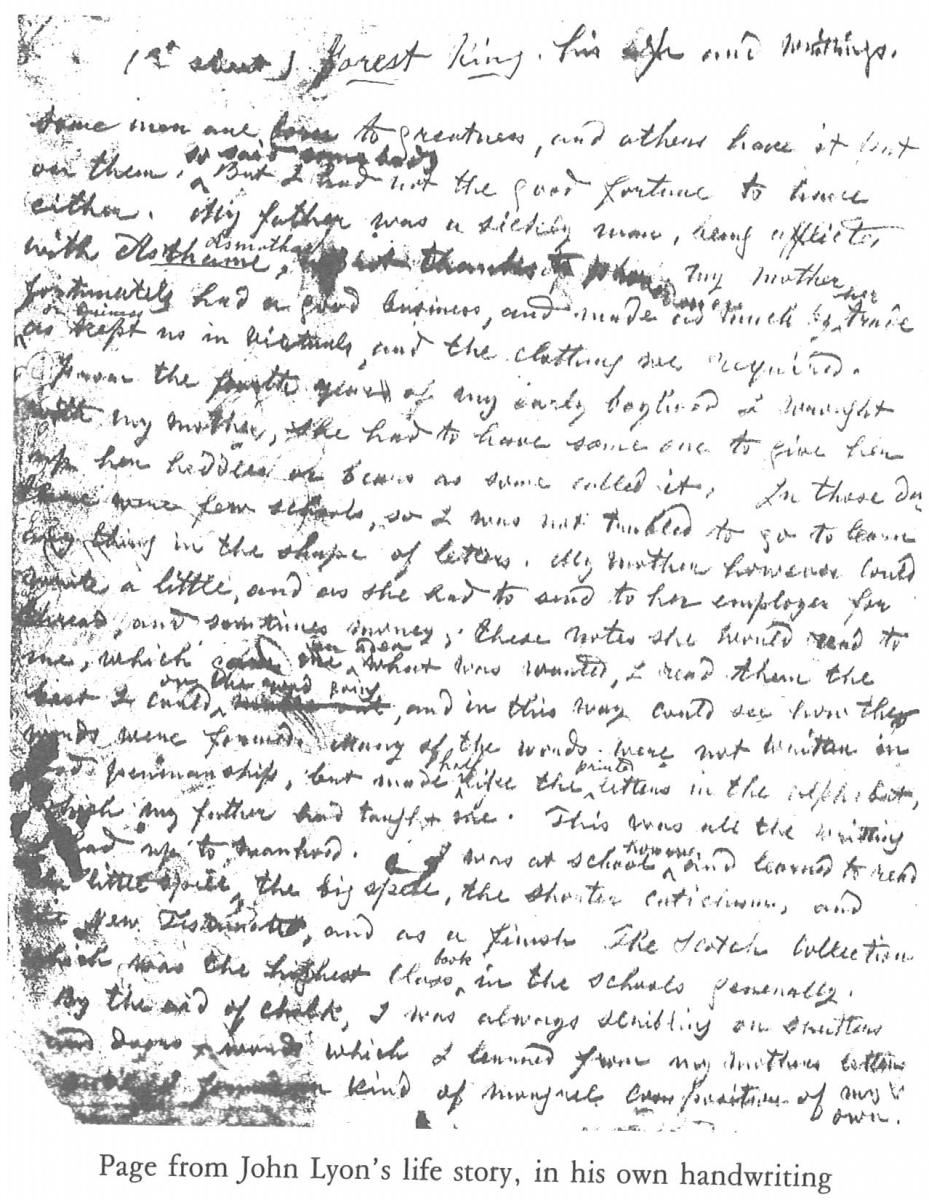 (1st sheet) Forest King. his life and writings.
Some men are born to greatness, and others have it put
so said some body
on them. But I had not the good fortune to have
either. My father was a sickly man, being afflicted
Asmatha
with Asthame, my mother
fortunately had a good business, and made as much by her trade
as kept us in victuals, and the clothing we required.
From the fourth year of my early boyhood I wrought
with my mother, she had to have some one to give her
up her heddles or beans as some called it. In those da
there were few schools, so I was not trubled to go to learn
any thing in the shape of letters. My mother however could
write a little, and as she had to send to her employer for
thread, and sometimes money; these notes she would read to
an idea
me, which what was wanted, I read them the
best I could, and in this way could see how the
words were formed. Many of the words were not written in
half printed
penmanship, but made like the letters in the alphabet,
which my father had taught me. This was all the writting
however
had up to manhood. I was at school and learned to read
little spell, the big spell, the shorter caticism, and
New Testament, and as a finish The Scotch Collection
book
which was the highest Class in the schools generally.
By the aid of chalk, I was always scribling on shutters
and doors words which I learned from my mothers letters
kind of mongrel composition of my
own.
Page from John Lyon's life story, in his own handwriting